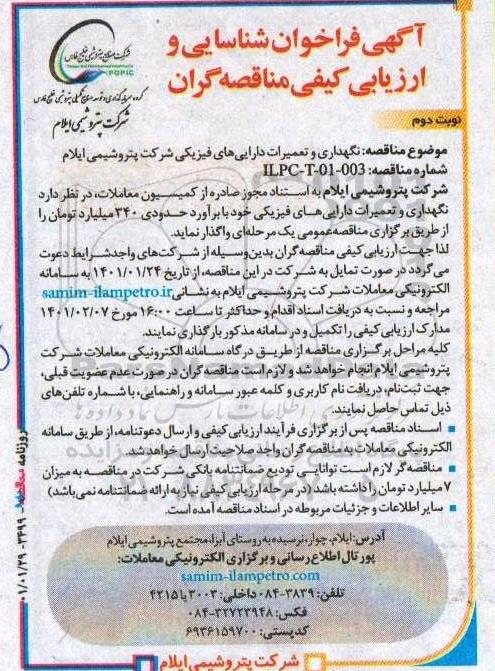 آگهی فراخوان شناسایی و
ارزیابی کیفی مناقصه‌گران
شرکت صنایع پتروشیمی خلیج فارس
PGPIC
گروه سرمایه‌گذاری و توسعه صنایع تکمیلی پتروشیمی خلیج فارس
شرکت پتروشیمی ایلام
نوبت دوم
موضوع مناقصه: نگهداری و تعمیرات دارایی‌های فیزیکی شرکت پتروشیمی ایلام
شماره مناقصه: ILPC-T-01-003
شرکت پتروشیمی ایلام به استناد مجوز صادره از کمیسیون معاملات، در نظر دارد
نگهداری و تعمیرات دارایی‌های فیزیکی خود با برآورد حدودی ۳۴۰ میلیارد تومان را
از طریق برگزاری مناقصه عمومی یک مرحله‌ای واگذار نماید.
لذا جهت ارزیابی کیفی مناقصه‌گران بدین‌وسیله از شرکت‌های واجد شرایط دعوت
می‌گردد در صورت تمایل به شرکت در این مناقصه، از تاریخ ۱۴۰۱/۰۱/۲۴ به سامانه
الکترونیکی معاملات شرکت پتروشیمی ایلام به نشانی samim-ilampetro.ir
مراجعه و نسبت به دریافت اسناد اقدام و حداکثر تا ساعت ۱۶:۰۰ مورخ ۱۴۰۱/۰۲/۰۷
مدارک ارزیابی کیفی را تکمیل و در سامانه مذکور بارگذاری نمایند.
کلیه مراحل برگزاری مناقصه از طریق درگاه سامانه الکترونیکی معاملات شرکت
پتروشیمی ایلام انجام خواهد شد و لازم است مناقصه‌گران در صورت عدم عضویت قبلی،
جهت ثبت‌نام، دریافت نام کاربری و کلمه عبور سامانه و راهنمایی، با شماره تلفن‌های
ذیل تماس حاصل نمایند.
■ اسناد مناقصه پس از برگزاری فرآیند ارزیابی کیفی و ارسال دعوتنامه، از طریق سامانه
الکترونیکی معاملات به مناقصه‌گران واجد صلاحیت ارسال خواهد شد.
■ مناقصه‌گر لازم است توانایی تودیع ضمانتنامه بانکی شرکت در مناقصه به میزان
۷ میلیارد تومان را داشته باشد (در مرحله ارزیابی کیفی نیاز به ارائه ضمانتنامه نمی‌باشد)
■ سایر اطلاعات و جزئیات مربوطه در اسناد مناقصه آمده است.
آدرس: ایلام، چوار، نرسیده به روستای آبزا، مجتمع پتروشیمی ایلام
پورتال اطلاع رسانی و برگزاری الکترونیکی معاملات:
samim-ilampetro.com
تلفن: ۳۸۳۹-۰۸۴ داخلی: ۳۰۰۳ یا ۴۲۱۵
فکس: ۳۲۷۲۳۹۴۸-۰۸۴
کدپستی: ۶۹۳۶۱۵۹۷۰۰
شرکت پتروشیمی ایلام
روزنامه ۳۲۹۹ - ۰۱/۰۱/۲۹